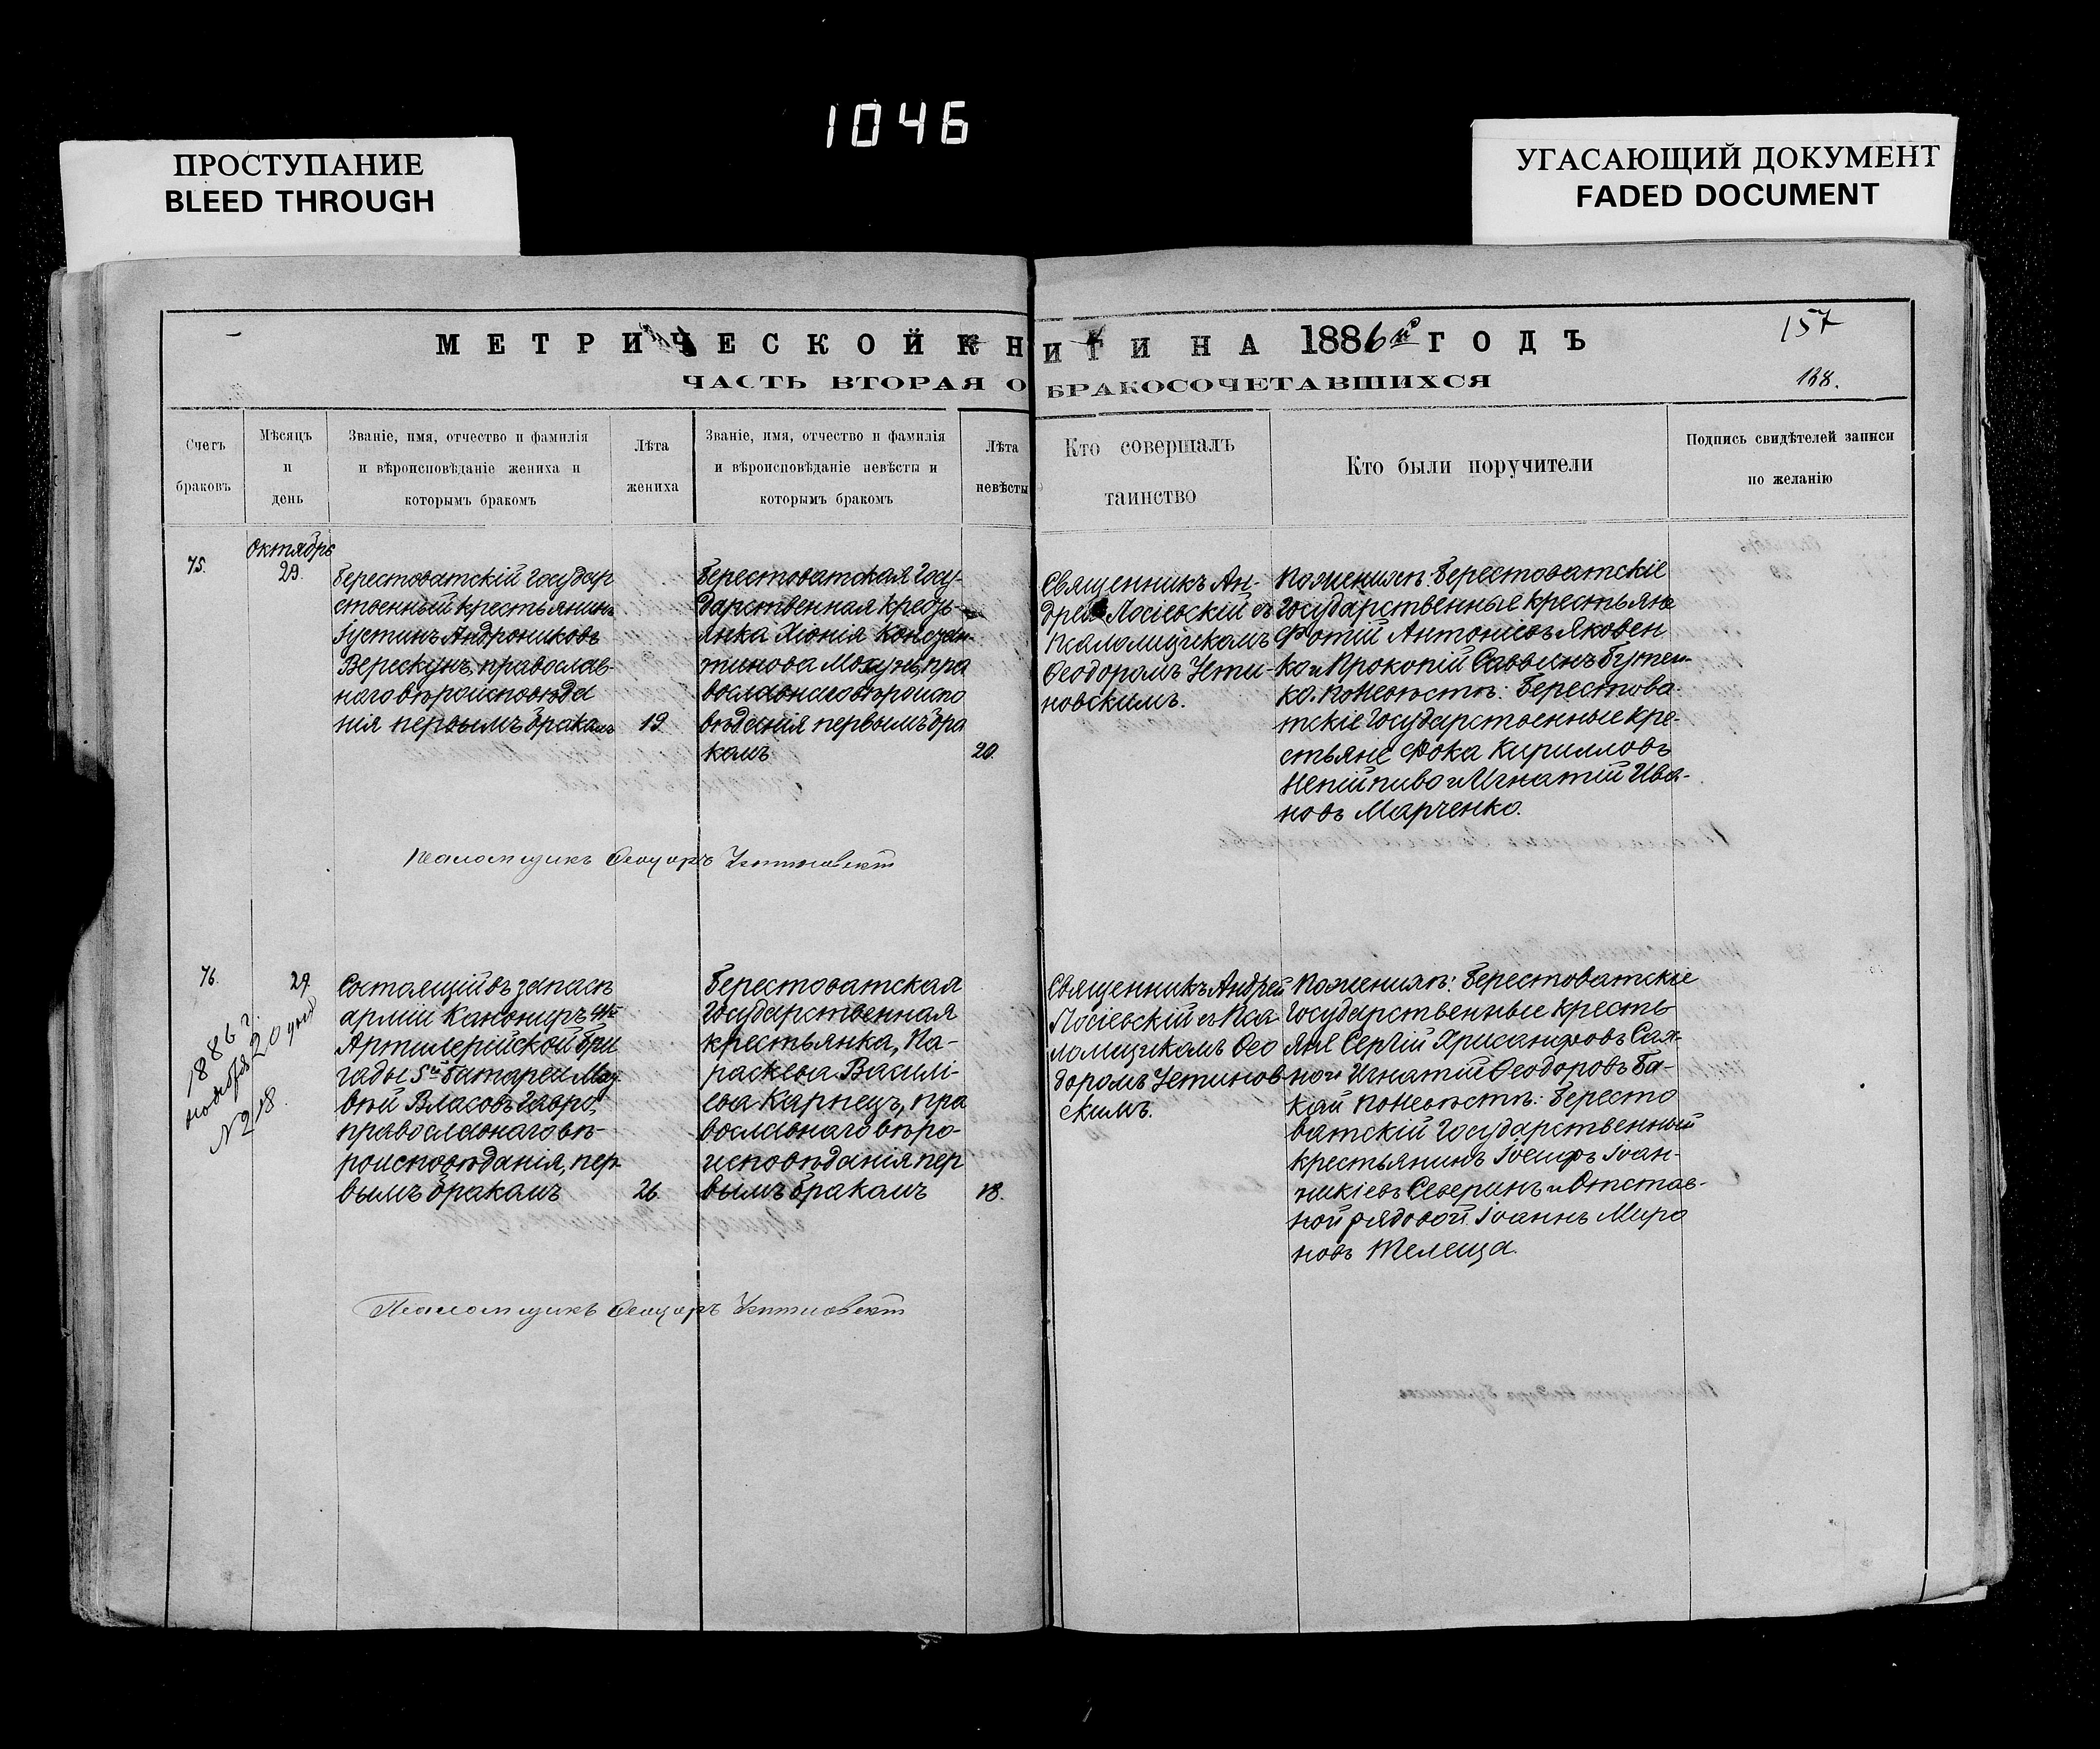 1046
ПРОСТУПАНИЕ
BLEED THROUGH
УГАСАЮЩИЙ ДОКУМЕНТ
FADED DOCUMENT
МЕТРИЧЕСКОЙ КНИГИ НА 1886й ГОДЪ
157
ЧАСТЬ ВТОРАЯ О БРАКОСОЧЕТАВШИХСЯ
138.
Счетъ
браковъ
Мѣсяцъ
и
день
Званіе, имя, отчество и фамилія
и вѣроисповѣданіе жениха и
которымъ бракомъ
Лѣта
жениха
Званіе, имя, отчество и фамилія
и вѣроисповѣданіе невѣсты и
которымъ бракомъ
Лѣта
невѣсты
Кто совершалъ
таинство
Кто были поручители
Подпись свидѣтелей записи
по желанію
75.
Октябрь
29.
Берестоватскій Государ
ственный крестьянинъ
Іустинъ Андрониковъ
Верескунъ, православ
наго вѣроисповѣда
нія первымъ бракомъ
19
Берестоватская Госу-
дарственная крестья-
янка Хіонія Констан-
тинова Могунъ, пра
вославнаго вѣроиспо
вѣданія первымъ бра
комъ
20.
Священникъ Ан-
дрей Лосіевскій съ
Псаломщикомъ
Ѳеодоромъ Усти-
новскимъ.
По женихѣ: Берестоватскіе
Государственные крестьяне
Фотій Антоніевъ Яковен
ко и Прокопій Саввинъ Бутен-
ко. По невѣстѣ: Берестова-
тскіе Государственные кре-
стьяне Фока Кирилловъ
Непійпиво и Игнатій Ива-
новъ Марченко.
Псаломщикъ Ѳеодоръ Устиновскій
76.
29
1886 г.
ноября 20 дня
№ 218.
Состоящій въ запасѣ
арміи Канониръ
Артилерійской бри
гады 5й батареи Мат
вѣй Власовъ Гавро,
православнаго вѣ-
роисповѣданія, пер
вымъ бракомъ
26.
Берестоватская
Государственная
крестьянка, Па-
раскева Василі-
ева Карпецъ, пра
вославнаго вѣро-
исповѣданія пер
вымъ бракомъ
18.
Священникъ Андрей
Лосіевскій съ Пса
ломщикомъ Ѳео
доромъ Устинов
скимъ.
По женихѣ: Берестоватскіе
Государственные кресть
яне Сергій Хрисанфовъ Сая-
но и Игнатій Ѳеодоровъ Ба-
кай По невѣстѣ: Бересто
ватскій Государственный
крестьянинъ Іосифъ Іоан-
никіевъ Северинъ и Отстав-
ной рядовой Іоаннъ Миро
новъ Телеща.
Псаломщикъ Ѳеодоръ Устиновскій